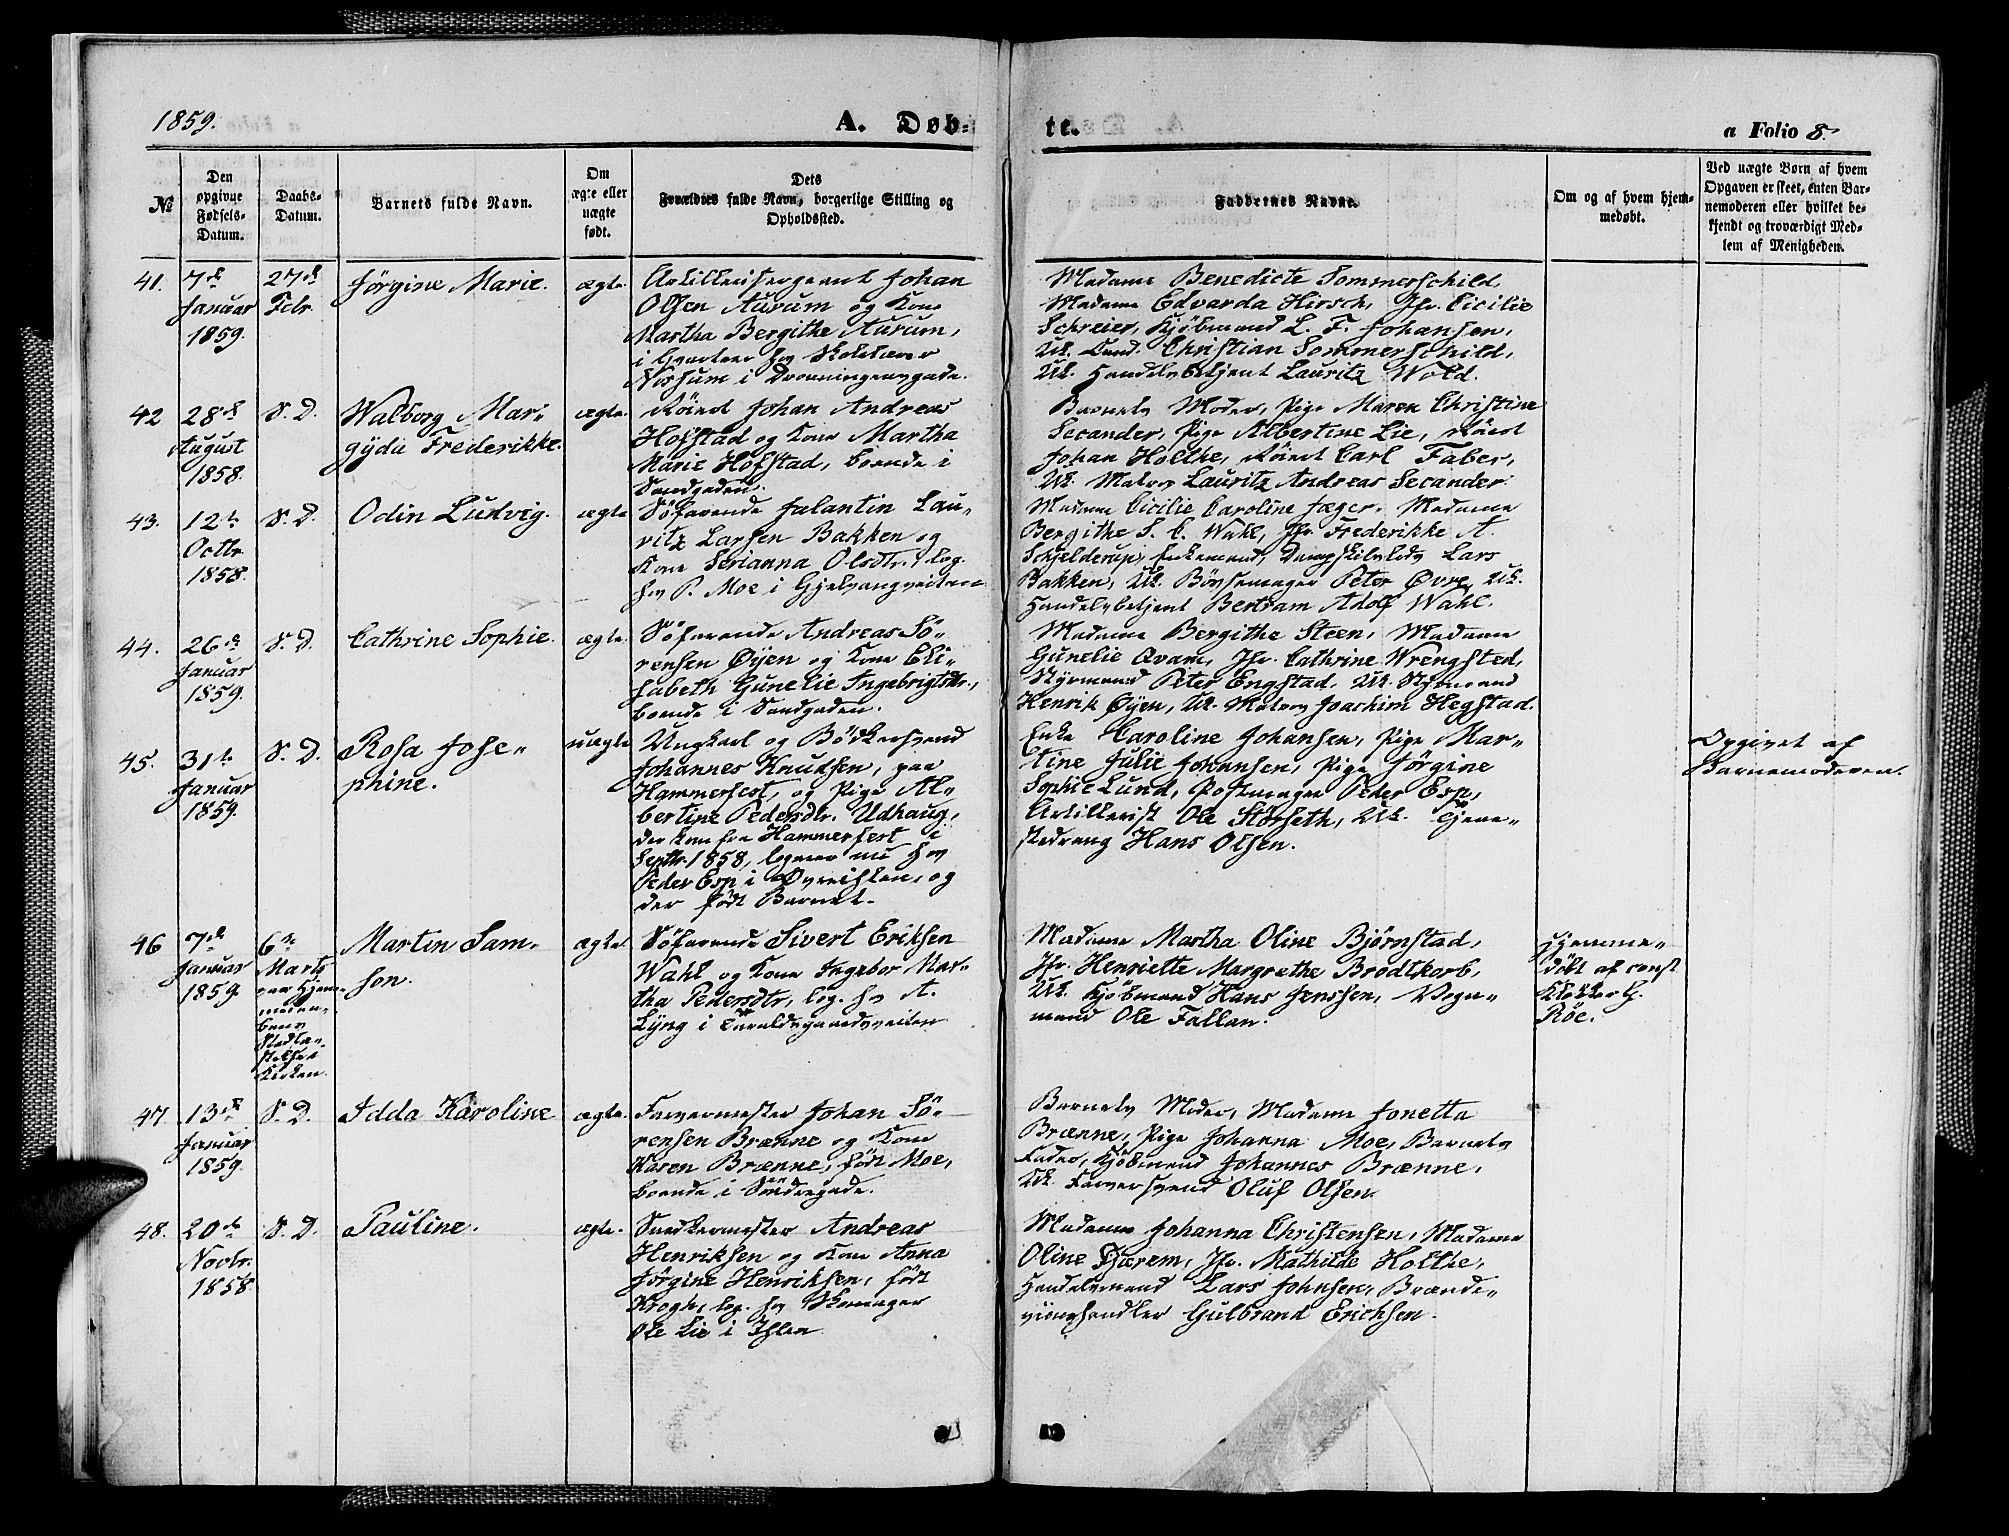 1859.
A. Døb-
te.
a Folio 8.
№
Den
opgivne
Fødsels-
Datum.
Daabs-
Datum.
Barnets fulde Navn.
Om
ægte eller
uægte
født.
Dets
Forældres fulde Navn, borgerlige Stilling og
Opholdssted.
Faddernes Navne.
Om og af hvem hjem-
medøbt.
Ved uægte Børn af hvem
Opgaven er skeet, enten Bar-
nemoderen eller hvilket be-
kjendt og troværdigt Med-
lem af Menigheden.
41.
7de
Januar
1859.
27de
Febr.
Jørgine Marie.
ægte.
Artillerisergeant Johan
Olsen Aurum og Kone
Martha Bergithe Aurum,
i Qvarteer hos Skolelærer
Nossum i Dronningensgade.
Madame Benedicte Sommerschild,
Madame Edvarda Hirsch, Jfr. Cicilie
Schreier, Kjøbmand L. F. Johansen,
Uk. Cand. Christian Sommerschild,
Uk. Handelsbetjent Lauritz Wold.
42
28de
August
1858.
S. D.
Walborg Mar-
gyda Frederikke.
ægte.
Røiert Johan Andreas
Hofstad og Kone Martha
Marie Hofstad, boende i
Sandgaden.
Barnets Moder, Pige Maren Christine
Secander, Pige Albertine Lie, Røiert
Johan Holthe, Røiert Carl Faber,
Uk. Matros Lauritz Andreas Secander.
43.
12te
Octbr.
1858.
S. D.
Odin Ludvig.
ægte
Søfarende Falantin Lau-
ritz Larsen Bakken og
Kone Serianna Olsdtr., log.
hos P. Moe i Gjelvangveiten.
Madame Cicilie Caroline Jæger, Madame
Bergithe S. C. Wahl, Jfr. Frederikke A.
Schjelderup, Enkemand, Lars
Bakken, Uk. Bøssemager Peter Øvre, Uk.
Handelsbetjent Bertram Adolf Wahl.
44.
26de
Januar
1859.
S. D.
Cathrine Sophie.
ægte.
Søfarende Andreas Sö-
rensen Øyen og Kone Eli-
sabeth Gunelie Ingebrigtsdtr.,
boende i Sandgaden.
Madame Bergithe Steen, Madame
Gunelie Qvam, Jfr. Cathrine Wrengsted,
Styrmand Peter Engstad, Uk. Styrmand
Henrik Øyen, Uk. Matros Joachim Hegstad.
45.
31te
Januar
1859.
S. D.
Rosa Jose-
phine.
uægte
Ungkarl og Bödkersvend
Johannes Knudsen, paa
Hammerfest, og Pige Al-
bertine Pedersdtr. Udhaug,
der kom fra Hammerfest i
Septbr. 1858, logerer nu hos
Peder Esp i Øvre Ihlen, og
der födt Barnet.
Enke Karoline Johansen, Pige Mar-
tine Julie Johansen, Pige Jørgine
Sophie Lund, Peder Esp,
Artillerist Ole Störseth, Uk. Tjene-
stedreng Hans Olsen.
Opgivet af
Barnemoderen.
46
7de
Januar
1859.
6te
Marts
paa Hjem-
medaab-
ens
Stadfæ-
stelse i
Kirken.
Martin Sam-
son.
ægte.
Søfarende Sivert Eriksen
Wahl og Kone Ingebor Mar-
tha Pedersdtr., log. hos A.
Lyng i Taraldsgaardsveiten
Madame Martha Oline Bjørnstad,
Jfr. Henriette Margrethe Brodtkorb,
Uk. Kjøbmand Hans Jenssen, Vogn-
mand Ole Fallan.
Hjemme-
döbt af const
Klokker G.
Röe.
47.
13de
Januar
1859.
S. D.
Idda Karoline
ægte.
Farvermester Johan Sö-
rensen Brænne og Kone
Karen Brænne, födt Moe,
boende i Söndregade.
Barnets Moder, Madame Jonetta
Brænne, Pige Johanna Moe, Barnets
Fader, Kjöbmand Johannes Brænne,
Uk. Farversvend Oluf Olsen.
48.
20de
Novbr.
1858.
S. D.
Pauline.
ægte.
Snedkermester Andreas
Henriksen og Kone Anna
Jørgine Henriksen, födt
Krogh, log. hos Skomager
Ole Lie i Ihlen
Madame Johanna Christensen, Madame
Oline Djærem, Jfr. Mathilde Holthe,
Handelsmand Lars Johnsen, Brænde-
viinshandler Gulbrand Ericksen.